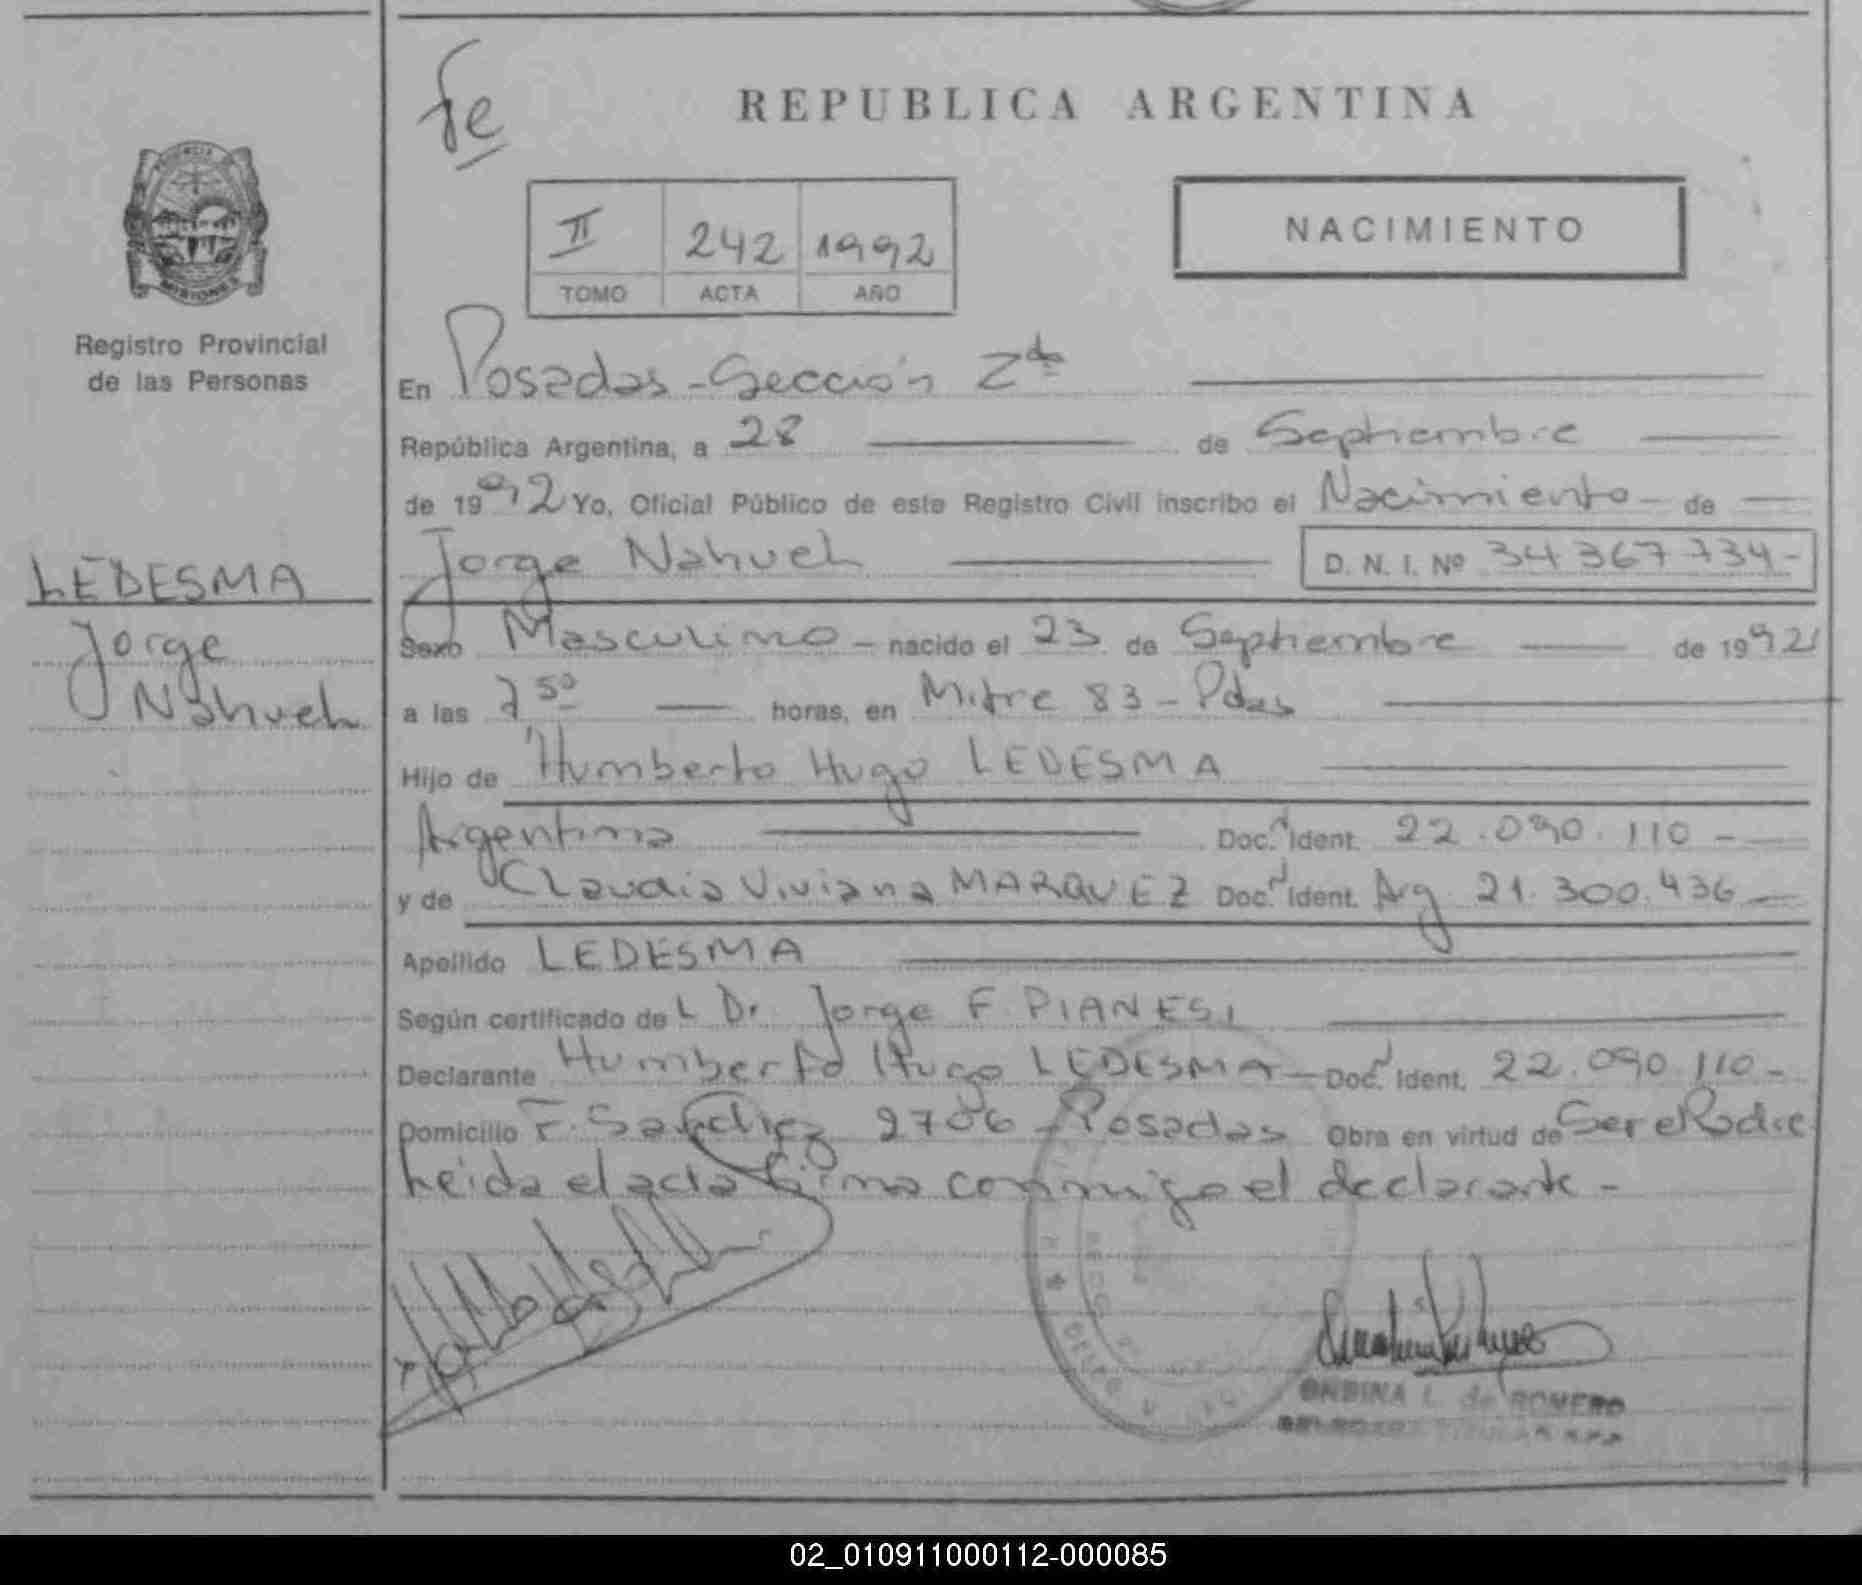 fe
REPUBLICA ARGENTINA
NACIMIENTO
II 242 1992
TOMO ACTA AÑO
PROVINCIA
MISIONES
Registro Provincial
de las Personas
LEDESMA
Jorge
Nahuel
En Posadas - Sección 2da
República Argentina, a 28 de Septiembre
de 1992 Yo, Oficial Público de este Registro Civil inscribo el Nacimiento - de
Jorge Nahuel D. N. I. Nº 34 367 734 -
Sexo Masculino - nacido el 23 de Septiembre de 1992
a las 7 50 horas, en Mitre 83 - Pdas
Hijo de Humberto Hugo LEDESMA
Argentina Doc. Ident. 22.090.110 -
y de Claudia Viviana MARQUEZ Doc. Ident. Arg 21.300.436
Apellido LEDESMA
Según certificado de L Dr Jorge F. PIANESI
Declarante Humberto Hugo LEDESMA - Doc. Ident. 22.090.110 -
Domicilio F. Sanchez 2706 - Posadas Obra en virtud de Ser el Padre
Leida el acta firma conmigo el declarante -
ONDINA L. de ROMERO
02_010911000112-000085